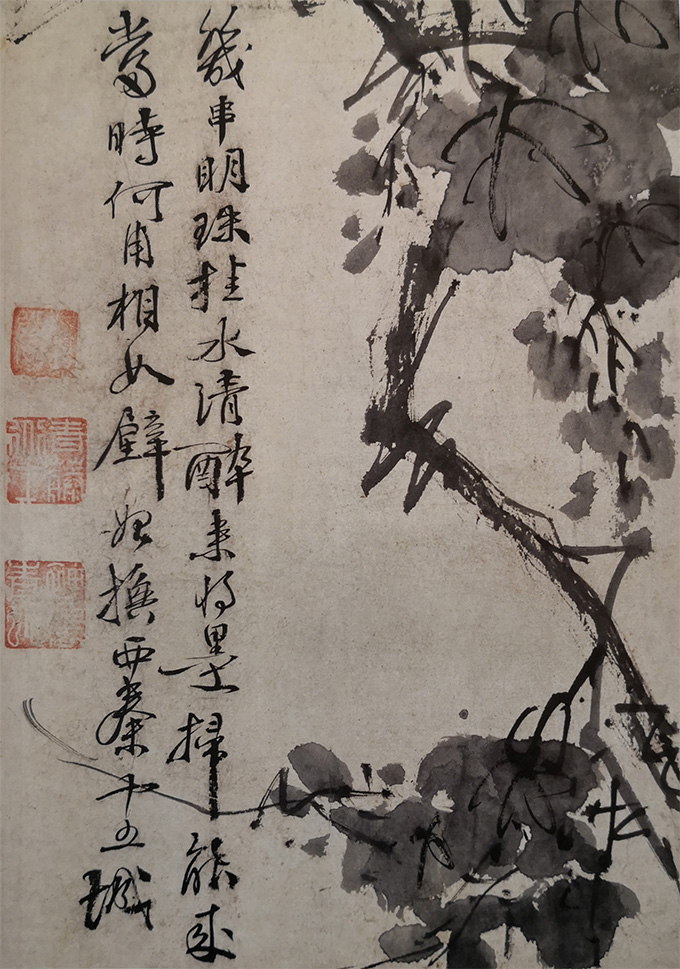 幾串明珠挂水清醉来將墨掃能成
當時何用相如璧始換西秦十五城